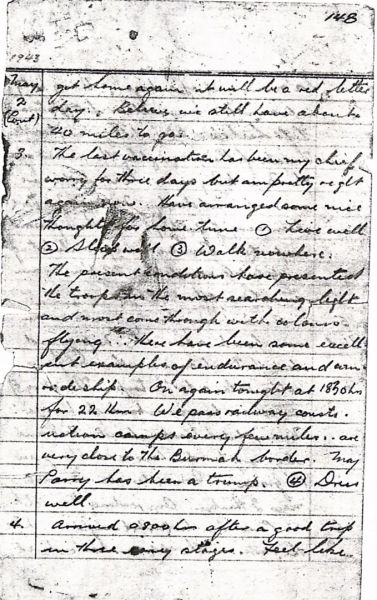 14B
1943
May 2 (Cont) get home again it will be a red letter
day. Believe we still have about
40 miles to go.
3 The last vaccination has been my chief
worry for three days but am pretty right
again now. Have arranged some nice
thoughts for home time ① Live well
② Sleep well ③ Walk nowhere.
The present conditions have presented
the troops in the most searching light
and most come through with colours
flying. There have been some excell
ent examples of endurance and com
radeship. On again tonight at 1830 hrs
for 22 Km. We pass railway const
ruction camps every few miles. are
very close to the Burmah border. May
Parry has been a trump. ④ Dress
well.
4. Arrived 0800 hrs after a good trip
in three easy stages. Feel like